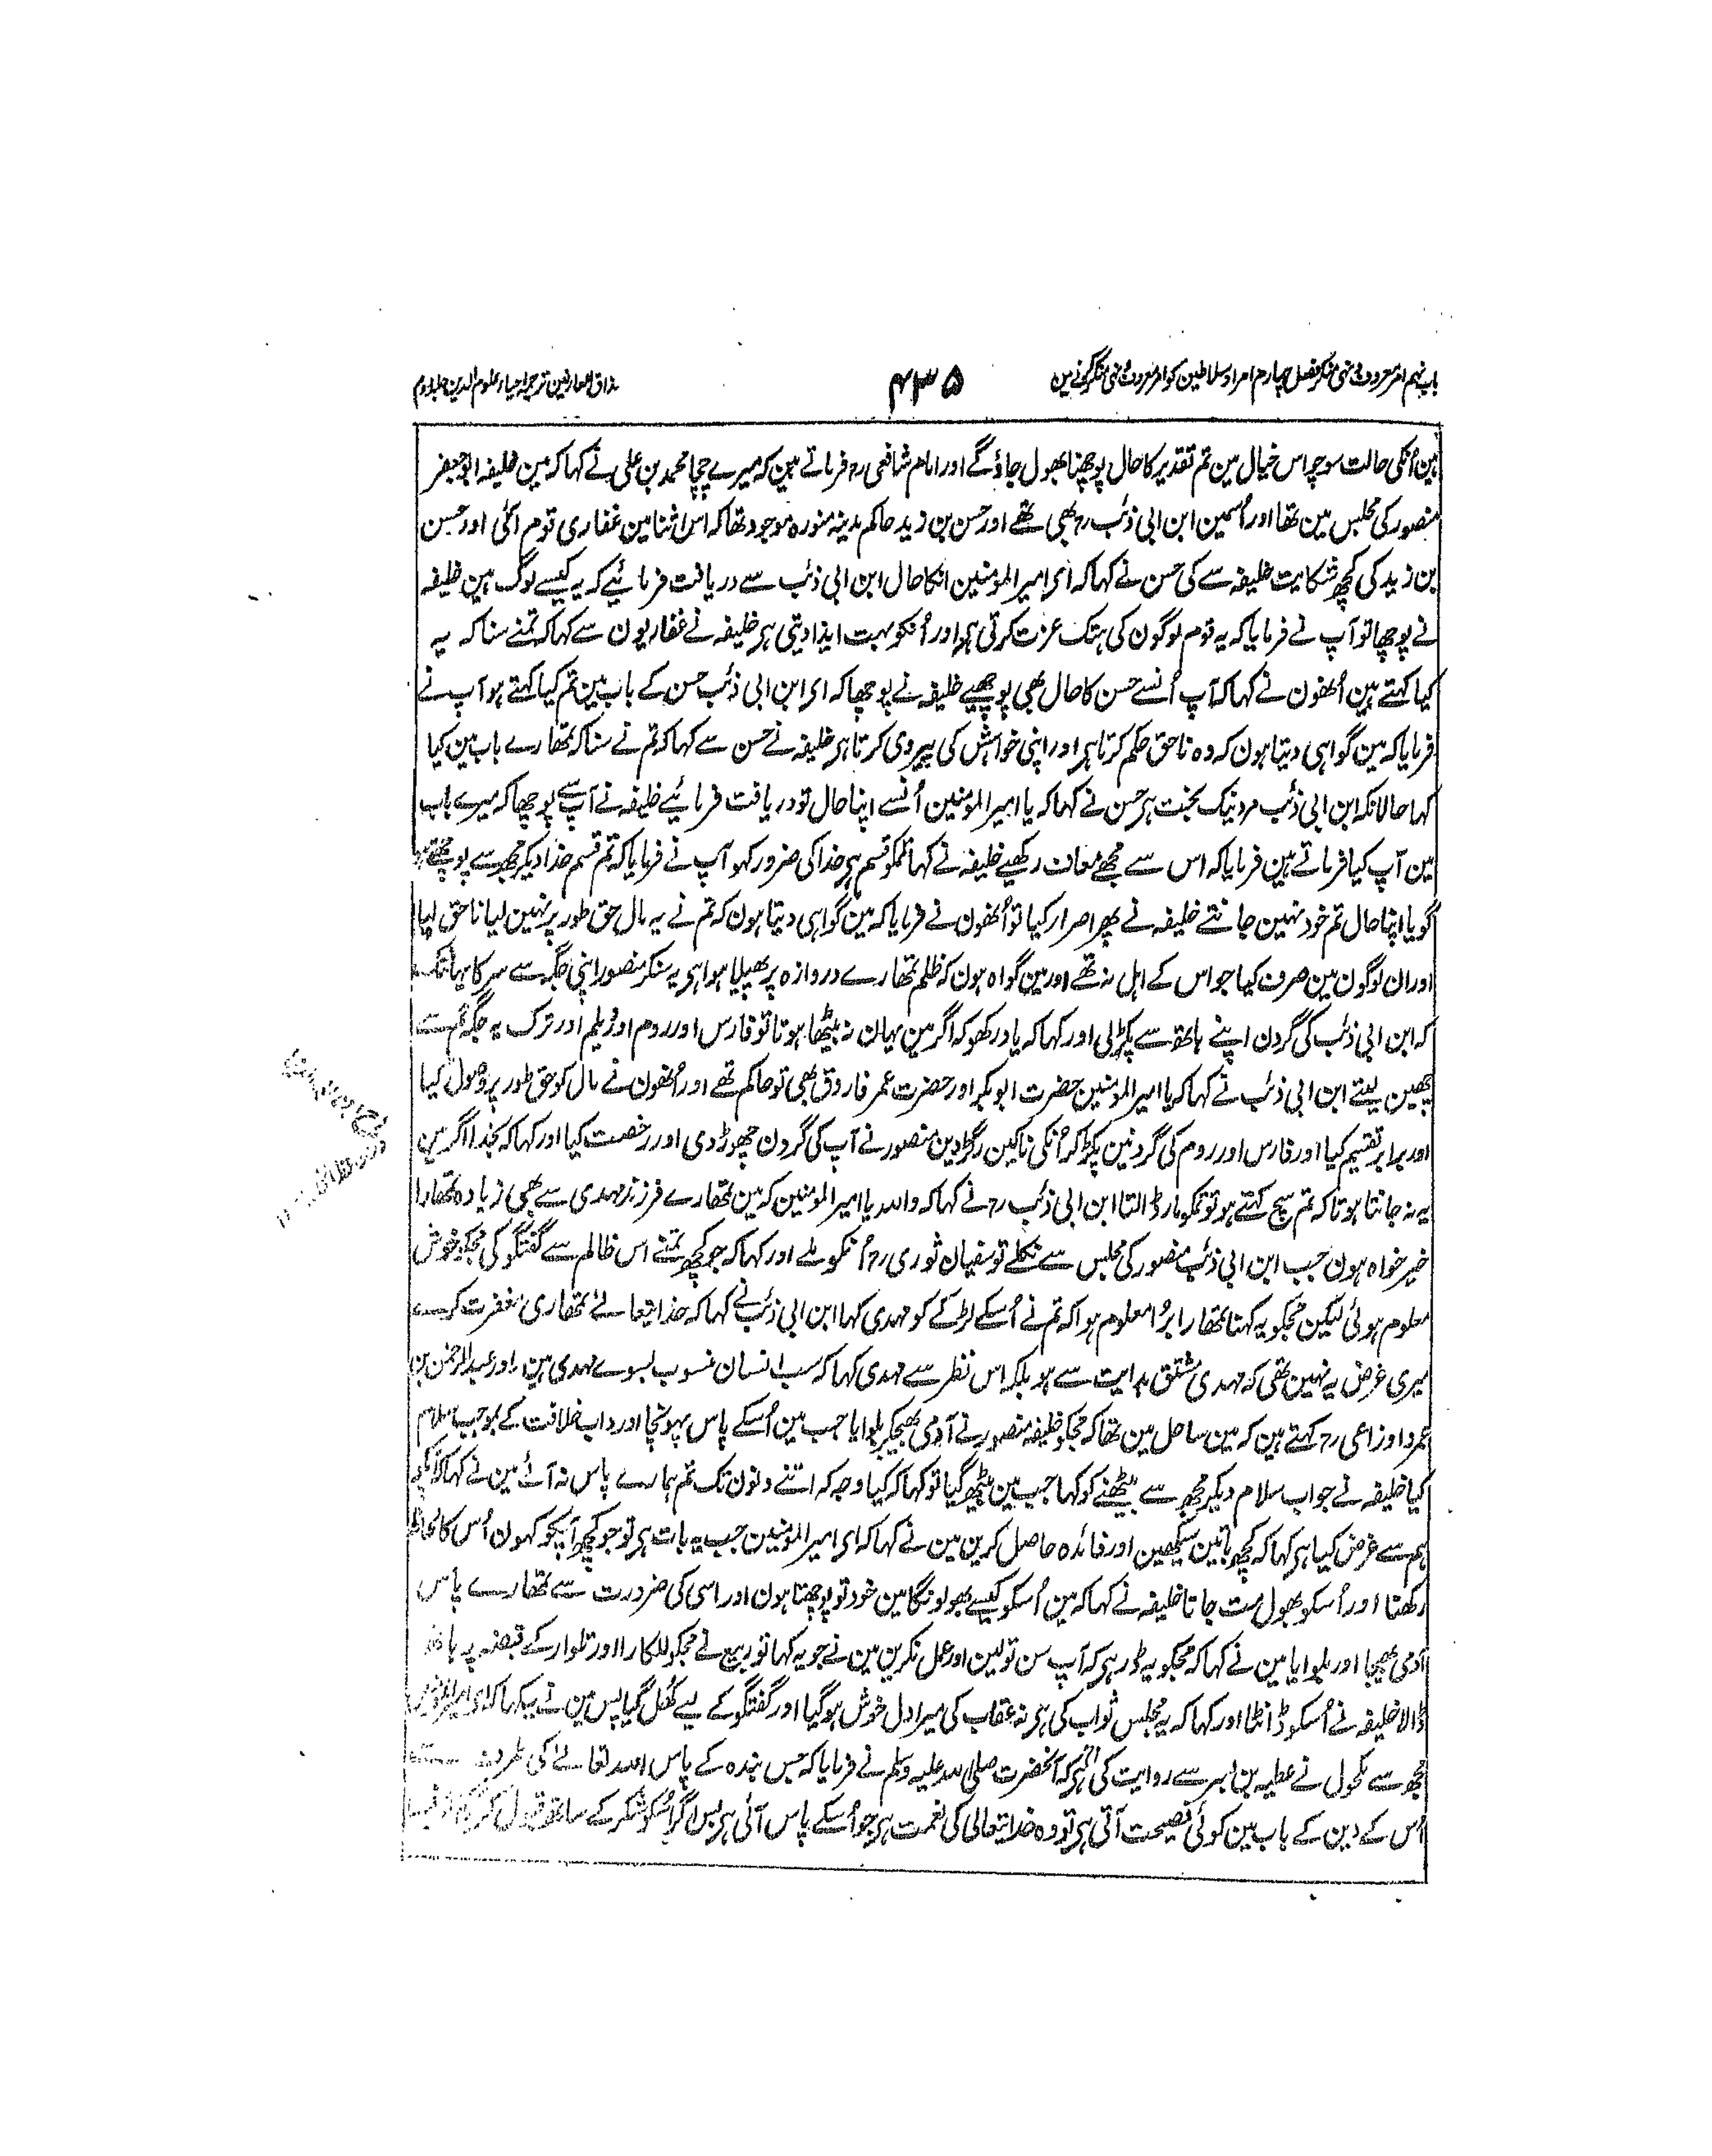 باب نہم امر معروف ونہی منکر فصل چہارم امرا و سلاطین کو امر معروف ونہی منکر کرنے مین
۴۳۵
مذاق العارفین ترجمہ احیاء علوم الدین جلد دوم
ہین اُنکی حالت سوچو اس خیال مین تم تقدیر کا حال پوچھنا بھول جاؤگے اور امام شافعی رح فرماتے ہین کہ میرے چچا محمد بن علی نے کہا کہ مین خلیفہ ابو جعفر
منصور کی مجلس مین تھا اور اُسمین ابن ابی ذئب رح بھی تھے اور حسن بن زید حاکم مدینہ منورہ موجود تھا کہ اس اثنا مین غفاری قوم آئی اور حسن
بن زید کی کچھ شکایت خلیفہ سے کی حسن نے کہا کہ ای امیر المومنین انکا حال ابن ابی ذئب سے دریافت فرمائیے کہ یہ کیسے لوگ ہین خلیفہ
نے پوچھا تو آپ نے فرمایا کہ یہ قوم لوگون کی ہتک عزت کرتی ہر اور اُنکو بہت ایذا دیتی ہر خلیفہ نے غفاریون سے کہا کہ تمنے سنا کہ یہ
کیا کہتے ہین اُنھون نے کہا کہ آپ اُنسے حسن کا حال بھی پوچھیے خلیفہ نے پوچھا کہ ای ابن ابی ذئب حسن کے باب مین تم کیا کہتے ہو آپ نے
فرمایا کہ مین گواہی دیتا ہون کہ وہ ناحق حکم کرتا ہر اور اپنی خواہش کی پیروی کرتا ہر خلیفہ نے حسن سے کہا کہ تم نے سنا کہ تمھارے باب مین کیا
کہا حالانکہ ابن ابی ذئب مرد نیک بخت ہر حسن نے کہا کہ یا امیر المومنین اُنسے اپنا حال تو دریافت فرمائیے خلیفہ نے آپ سے پوچھا کہ میرے باب
مین آپ کیا فرماتے ہین فرمایا کہ اس سے مجھے معاف رکھیے خلیفہ نے کہا تمکو قسم ہر خدا کی ضرور کہو آپ نے فرمایا کہ تم قسم خدا دیکر مجھ سے پوچھتے ہو
گویا اپنا حال تم خود نہین جانتے خلیفہ نے پھر اصرار کیا تو اُنھون نے فرمایا کہ مین گواہی دیتا ہون کہ تم نے یہ مال حق طور پر نہین لیا ناحق لیا
اور ان لوگون مین صرف کیا جو اس کے اہل نہ تھے اور مین گواہ ہون کہ ظلم تمھارے دروازہ پر پھیلا ہوا ہر یہ سنکر منصور اپنی جگہ سے سرکا یہانتک
کہ ابن ابی ذئب کی گردن اپنے ہاتھ سے پکڑلی اور کہا کہ یاد رکھو کہ اگر مین یہان نہ بیٹھا ہوتا تو فارس اور روم اور دیلم اور ترک یہ جگہ تم سے
چھین لیتے ابن ابی ذئب نے کہا کہ یا امیر المومنین حضرت ابو بکر اور حضرت عمر فاروق بھی تو حاکم تھے اور اُنھون نے مال کو حق طور پر وصول کیا
اور برابر تقسیم کیا اور فارس اور روم کی گردنین پکڑ کر اُنکی ناکین رگڑا دین منصور نے آپ کی گردن چھوڑ دی اور رخصت کیا اور کہا کہ بخدا اگر مین
یہ نہ جانتا ہوتا کہ تم سچ کہتے ہو تو تمکو مار ڈالتا ابن ابی ذئب رح نے کہا کہ واللہ یا امیر المومنین کہ مین تمھارے فرزند مہدی سے بھی زیادہ تمھارا
خیر خواہ ہون جب ابن ابی ذئب منصور کی مجلس سے نکلے تو سفیان ثوری رح اُنکو ملے اور کہا کہ جو کچھ تمنے اس ظالم سے گفتگو کی مجکو خوش
معلوم ہوئی لیکن مجکو یہ کہنا تمھارا برُا معلوم ہوا کہ تم نے اُسکے لڑکے کو مہدی کہا ابن ابی ذئب نے کہا کہ خدایتعالےٰ تمھاری مغفرت کرے
میری غرض یہ نہین تھی کہ مہدی مشتق ہدایت سے ہو بلکہ اس نظر سے مہدی کہا کہ سب انسان منسوب بسوے مہدی ہین اور عبدالرحمٰن بن
عمرو اوزاعی رح کہتے ہین کہ مین ساحل مین تھا کہ مجکو خلیفہ منصور نے آدمی بھیجکر بلوایا جب مین اُسکے پاس پہونچا اور داب خلافت کے بموجب سلام
کیا خلیفہ نے جواب سلام دیکر مجھ سے بیٹھنے کو کہا جب مین بیٹھ گیا تو کہا کہ کیا وجہ کہ اتنے دنون تک تم ہمارے پاس نہ آئے مین نے کہا کہ آپکو
ہم سے غرض کیا ہر کہا کہ کچھ باتین سیکھین اور فائدہ حاصل کرین مین نے کہا کہ ای امیر المومنین جب یہ بات ہر تو جو کچھ آپکو کہون اُس کا لحاظ
رکھنا اور اُسکو بھول مت جانا خلیفہ نے کہا کہ مین اُسکو کیسے بھولونگا مین خود تو پوچھتا ہون اور اسی کی ضرورت سے تمھارے پاس
آدمی بھیجا اور بلوایا مین نے کہا کہ مجکو یہ ڈر ہر کہ آپ سن تولین اور عمل نکرین مین نے جو یہ کہا تو ربیع نے مجکو للکارا اور تلوار کے قبضہ پہ ہاتھ
ڈالا خلیفہ نے اُسکو ڈانٹا اور کہا کہ یہ مجلس ثواب کی ہر نہ عقاب کی میرا دل خوش ہوگیا اور گفتگو کے لیے کُھل گیا پس مین نے یہ کہا کہ ای امیر المومنین
مجھ سے مکحول نے عطیہ بن بسر سے روایت کی ہر کہ آنحضرت صلی اللہ علیہ وسلم نے فرمایا کہ جس بندہ کے پاس اللہ تعالےٰ کی طرف سے
اُس کے دین کے باب مین کوئی نصیحت آتی ہر تو وہ خدایتعالی کی نعمت ہر جو اُسکے پاس آئی ہر پس اگر اُسکو شکر کے ساتھ قبول کر